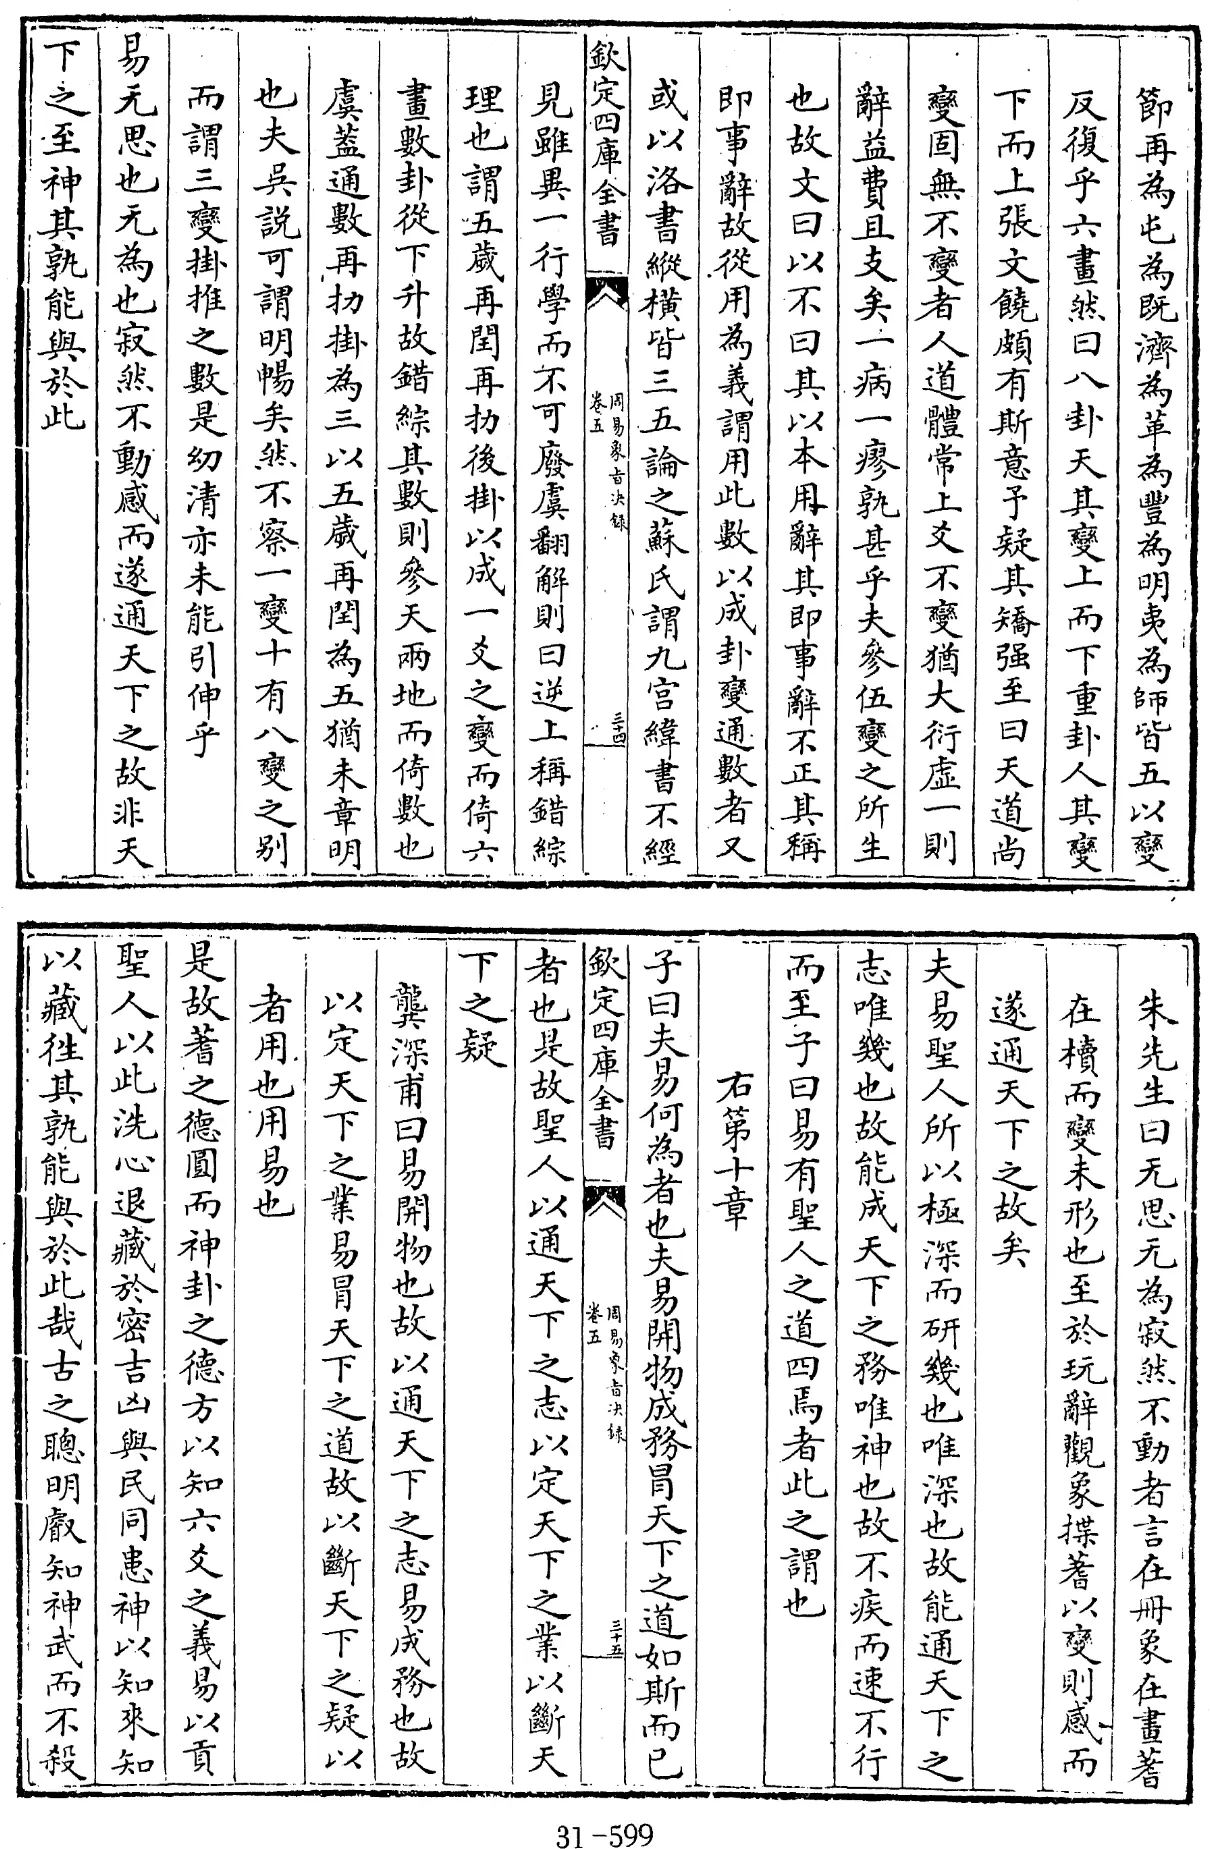 節再為屯為既濟為革為豐為明夷為師皆五以變
反復乎六畫然曰八卦天其變上而下重卦人其變
下而上張文饒頗有斯意予疑其矯强至曰天道尚
變固無不變者人道體常上爻不變猶大衍虛一則
辭益費且支矣一病一瘳孰甚乎夫參伍變之所生
也故文曰以不曰其以本用辭其即事辭不正其稱
即事辭故從用為義謂用此數以成卦變通數者又
或以洛書縱橫皆三五論之蘇氏謂九宮緯書不經
欽定四庫全書
周易象旨決錄
卷五
三十四
見雖異一行學而不可廢虞翻解則曰逆上稱錯綜
理也謂五歲再閏再扐後掛以成一爻之變而倚六
畫數卦從下升故錯綜其數則參天兩地而倚數也
虞蓋通數再扐掛為三以五歲再閏為五猶未章明
也夫吳説可謂明暢矣然不察一變十有八變之别
而謂三變掛推之數是幼清亦未能引伸乎
易无思也无為也寂然不動感而遂通天下之故非天
下之至神其孰能與於此
朱先生曰无思无為寂然不動者言在冊象在畫蓍
在櫝而變未形也至於玩辭觀象揲蓍以變則感而
遂通天下之故矣
夫易聖人所以極深而研幾也唯深也故能通天下之
志唯幾也故能成天下之務唯神也故不疾而速不行
而至子曰易有聖人之道四焉者此之謂也
右第十章
子曰夫易何為者也夫易開物成務冒天下之道如斯而已
欽定四庫全書
周易象旨決錄
卷五
三十五
者也是故聖人以通天下之志以定天下之業以斷天
下之疑
龔深甫曰易開物也故以通天下之志易成務也故
以定天下之業易冒天下之道故以斷天下之疑以
者用也用易也
是故蓍之德圓而神卦之德方以知六爻之義易以貢
聖人以此洗心退藏於密吉凶與民同患神以知來知
以藏徃其孰能與於此哉古之聰明叡知神武而不殺
31-599